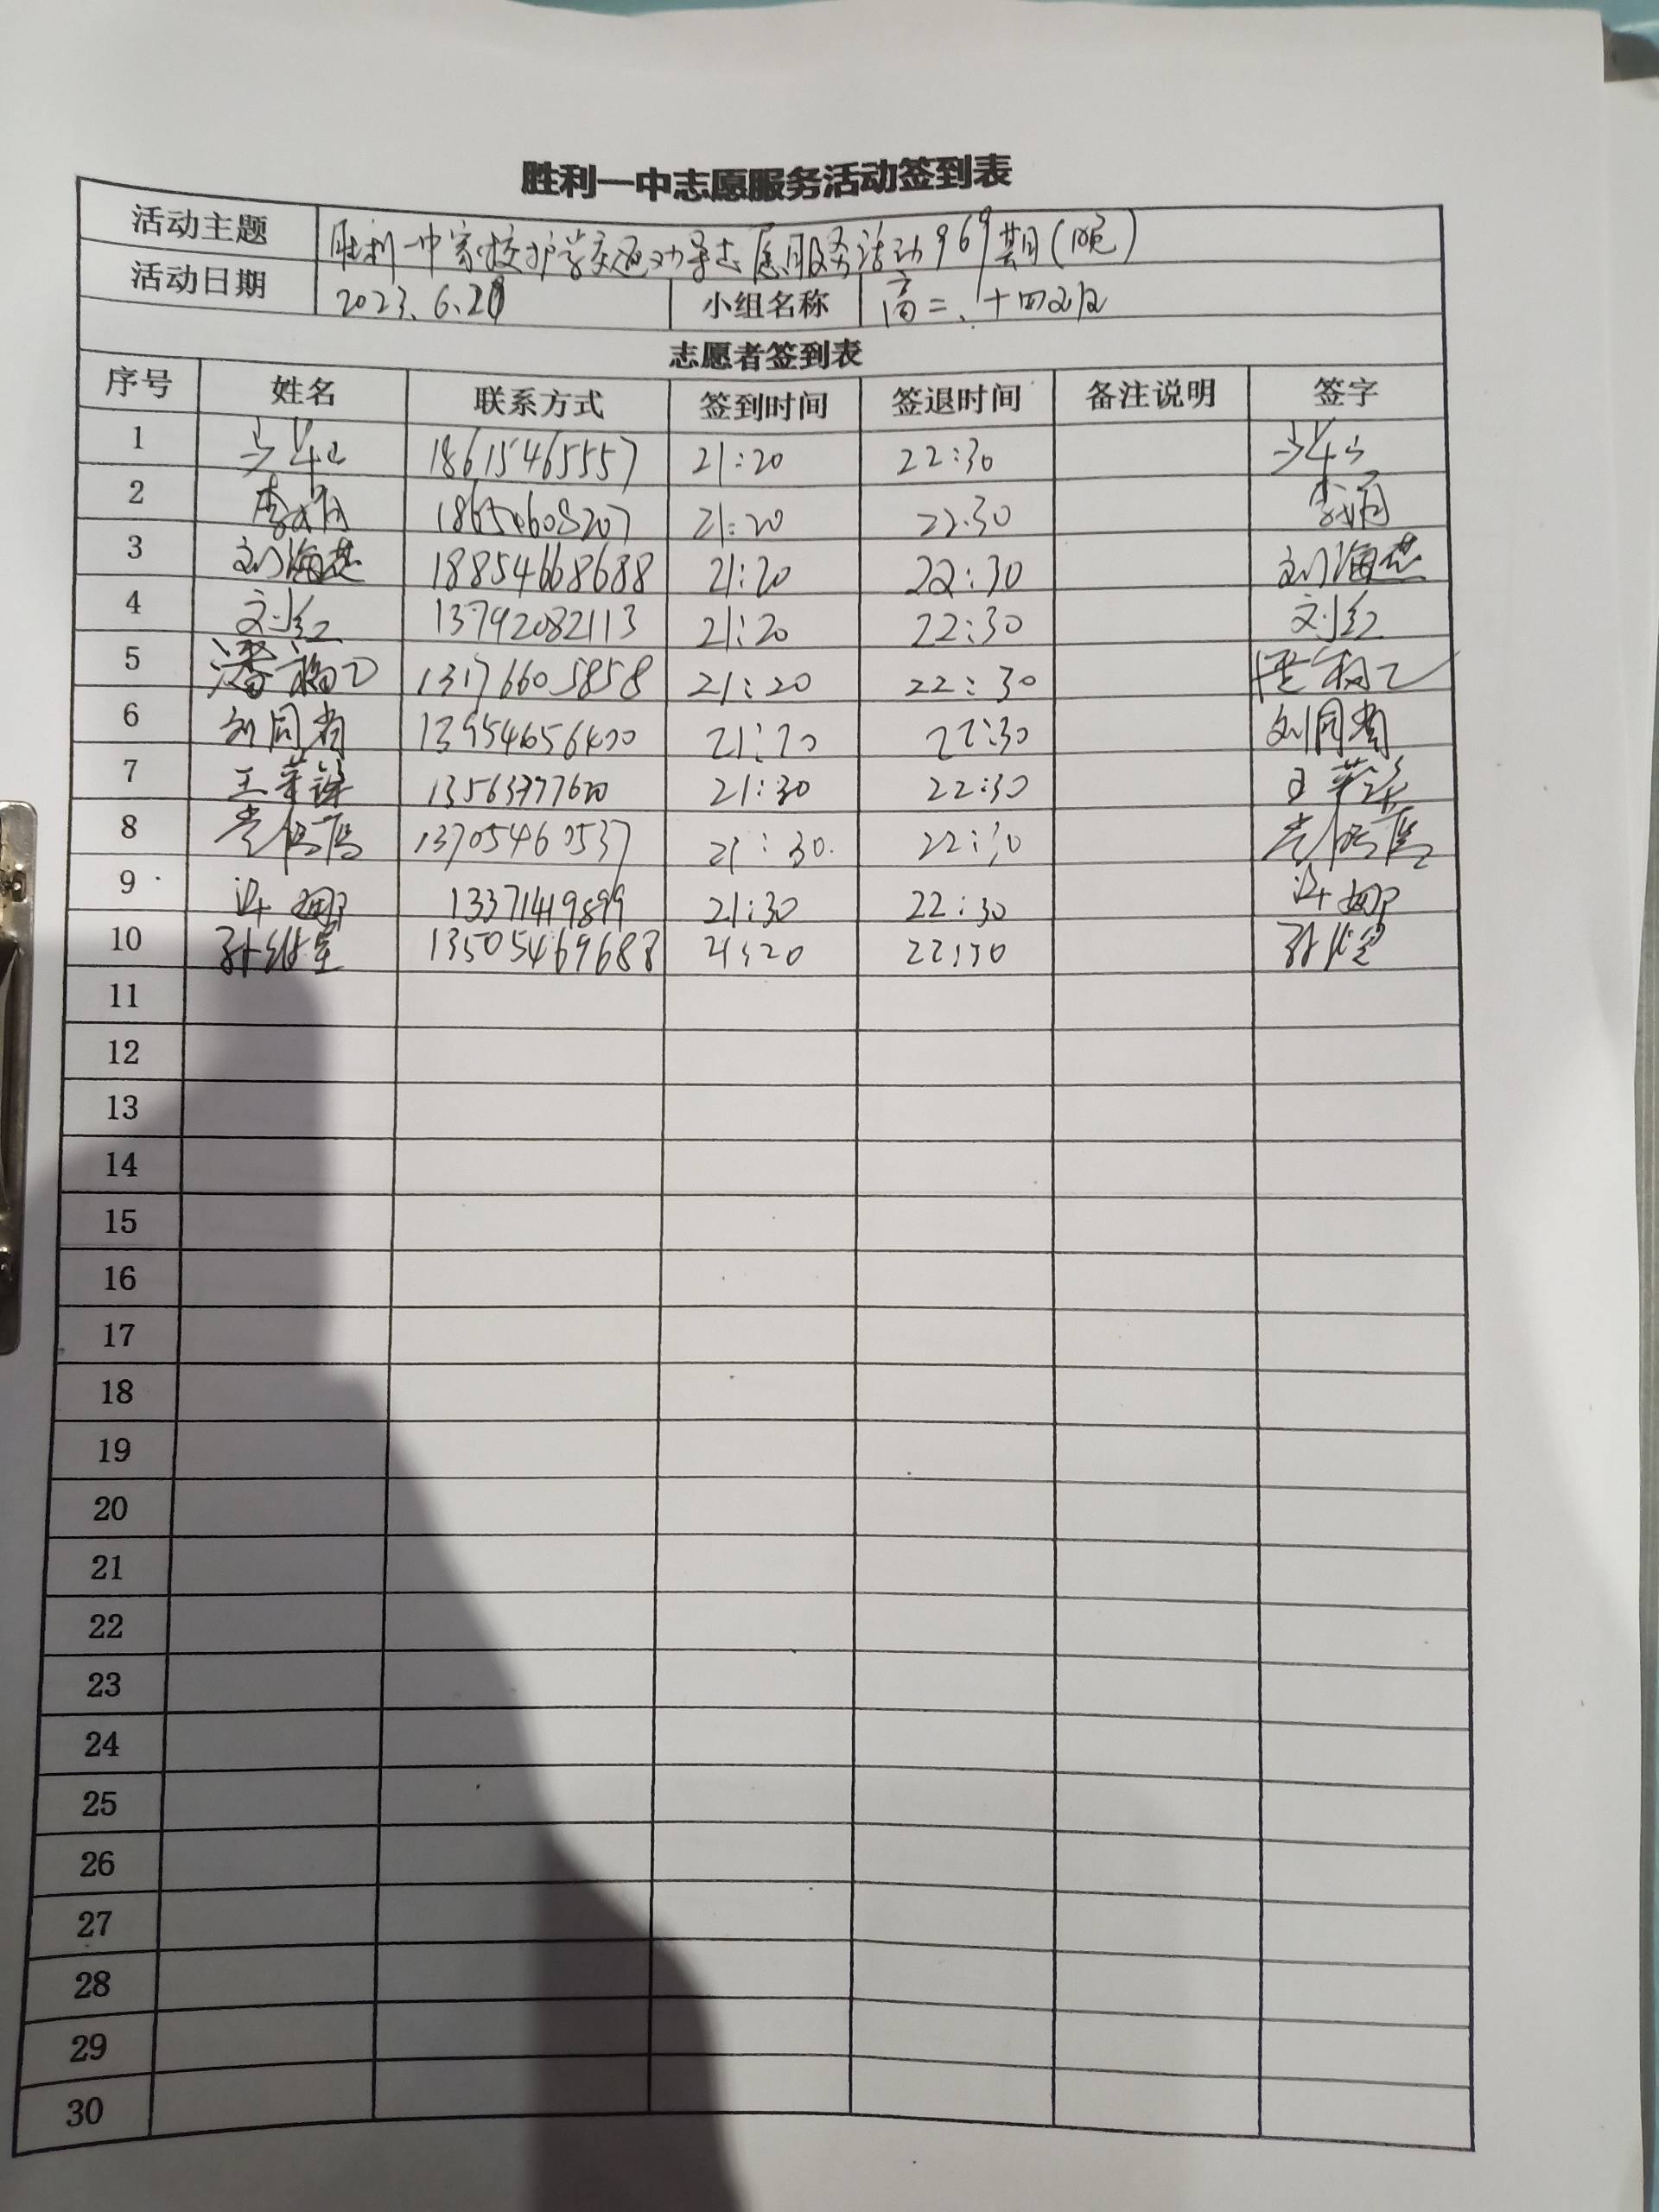 胜利一中志愿服务活动签到表
活动主题 胜利一中家校护学交通劝导志愿服务活动969期(晚)
活动日期 2023.6.20 小组名称 高二、十四
志愿者签到表
序号 姓名 联系方式 签到时间 签退时间 备注说明 签字
1 18615465557 21:20 22:30
2 18654608207 21:20 22:30
3 刘海燕 18854668688 21:20 22:30 刘海燕
4 刘红 13792082113 21:20 22:30 刘红
5 13176605858 21:20 22:30
6 刘同 13954656400 21:20 22:30 刘同
7 王 21:30 22:30 王
8 13705460537 21:30. 22:30
9 许娜 13371419899 21:30 22:30 许娜
10 孙 13505469688 21:20 22:30 孙
11
12
13
14
15
16
17
18
19
20
21
22
23
24
25
26
27
28
29
30